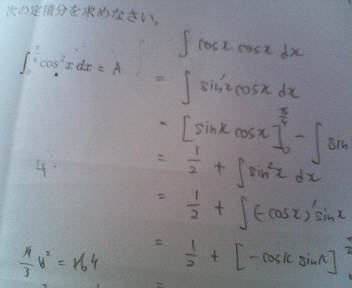 次の定積分を求めなさい。
∫₀^{π/4} cos²x dx = A
∫ cosx cosx dx
= ∫ sin'x cosx dx
= [sinx cosx]₀^{π/4} - ∫ sin
= 1/2 + ∫ sin²x dx
4
= 1/2 + ∫ (-cosx)' sinx
= 1/2 + [-cosx sinx]